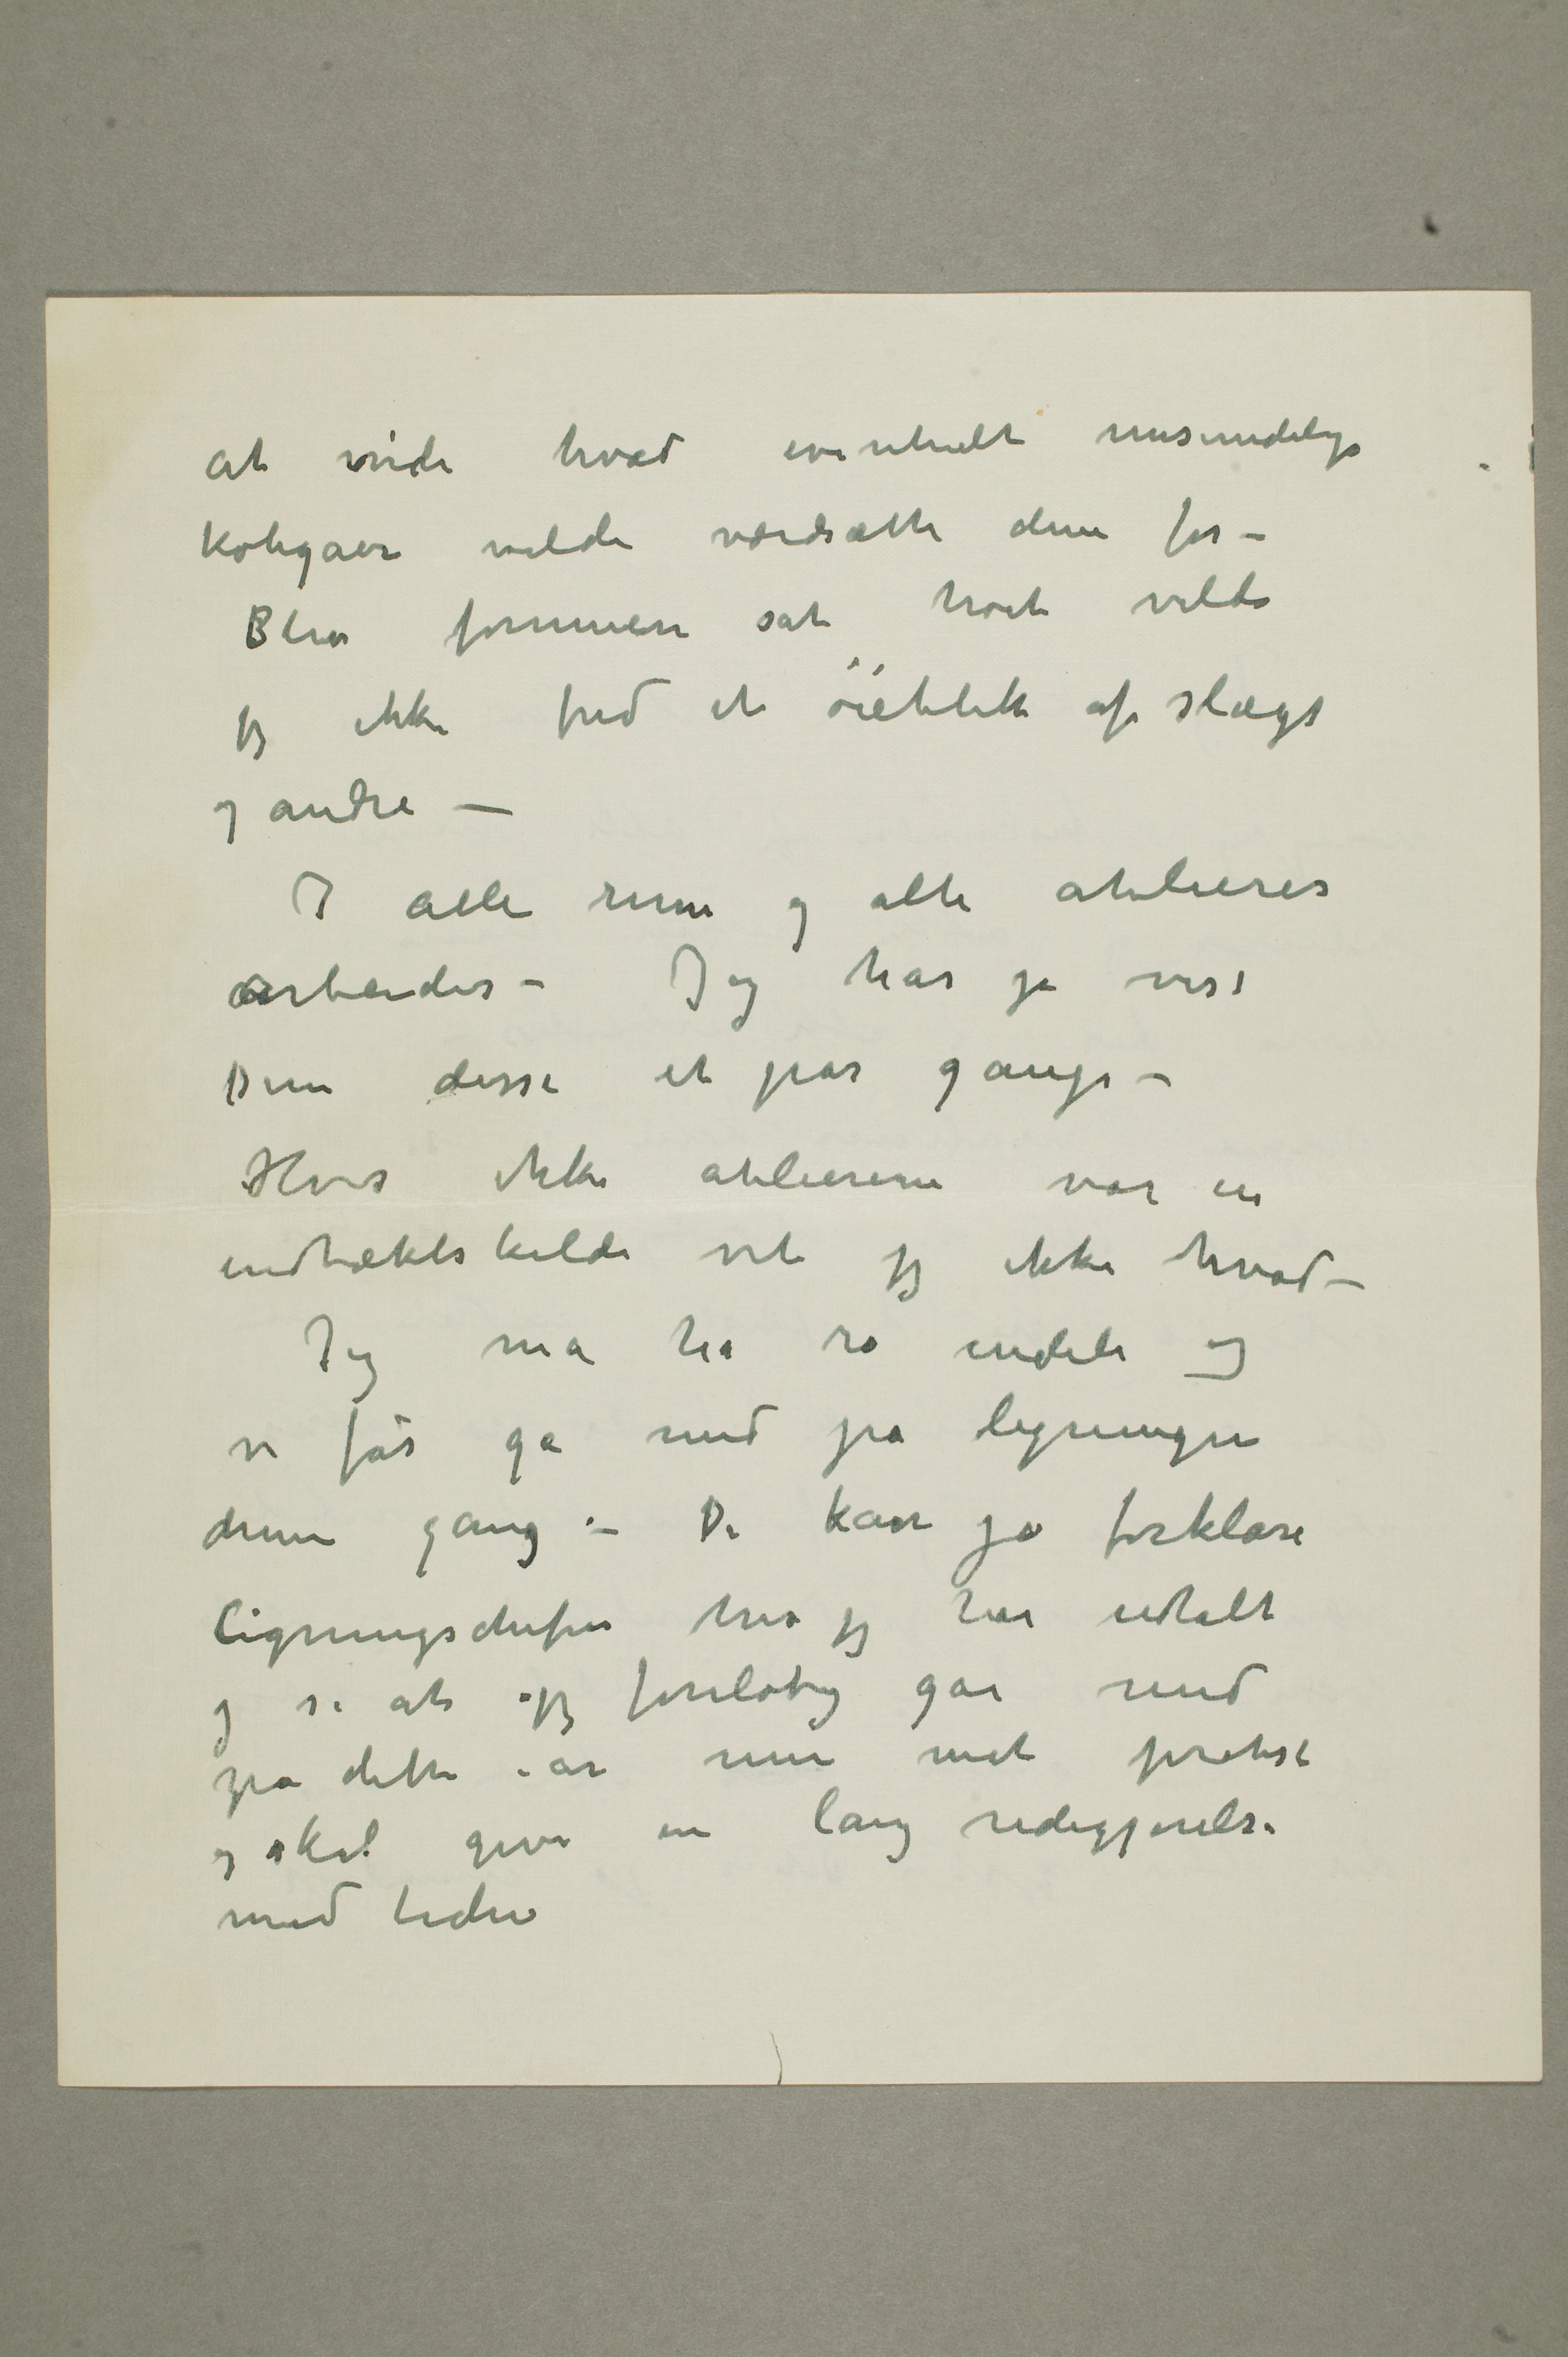 at vide hvad eventuelt misundelige
kolegaer vilde værdsætte dem for –
Blev formuen sat høit vilde
jeg ikke fred et öieblik af slægt
og andre –
I alle rum og alle atelierer
arbeides – Jeg har jo vist
Dem disse et par gange –
Hvis ikke atelierene var en
indtæktskilde vet jeg ikke hvad –
Jeg må ha ro endeli og
vi får gå med på ligningen
denne gang – De kan jo forklare
Ligningschefen hva jeg har udtalt
og si at jeg foreløbig går med
på dette iår men med protest
og skal give en lang redegjørelse
med tiden